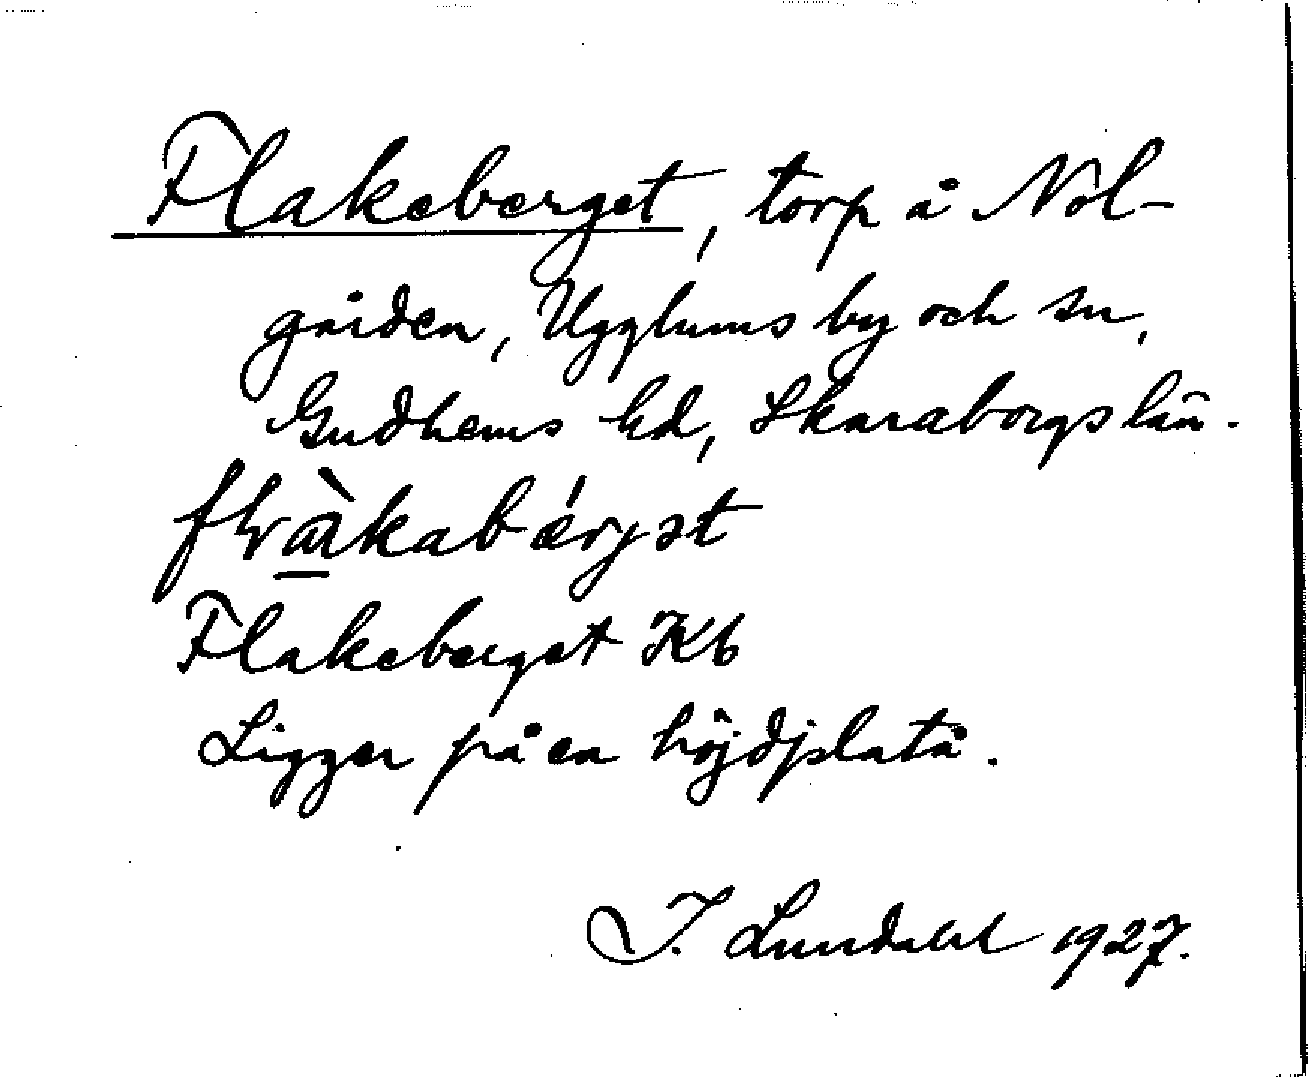 Flakeberget, torp å Nol-
gården, Ugglums by och sn,
Gudhems hd, Skaraborgs län.
Flakeberget Kb
Ligger på en höjdplatå.
I. Lundahl 1927.